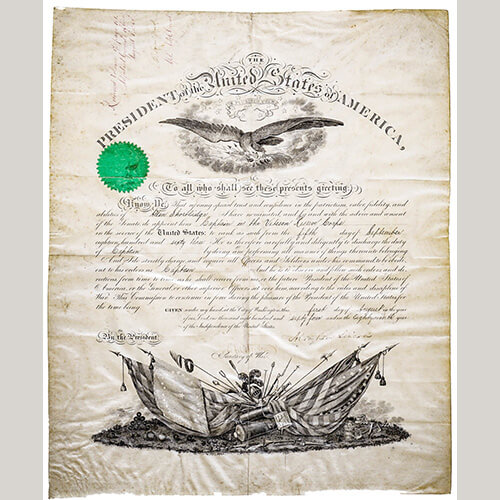 THE
PRESIDENT of the United States of AMERICA,
To all who shall see these presents greeting:
Know Ye, That reposing special trust and confidence in the patriotism, valor, fidelity and
abilities of I have nominated and by and with the advice and consent
of the Senate do appoint him Captain in the Veteran Reserve Corps
in the service of the United States: to rank as such from the fifth day of September
eighteen hundred and sixty He is therefore carefully and diligently to discharge the duty
of Captain by doing and performing all manner of things thereunto belonging.
And I do strictly charge, and require all Officers and Soldiers under his command to be obedient
to his orders as Captain And he is to observe and follow such orders and di-
rections from time to time as he shall receive from me or the future President of the United States of
America, or the General or other superior Officers set over him, according to the rules and discipline of
War. This Commission to continue in force during the pleasure of the President of the United States for
the time being.
GIVEN under my hand at the City of Washington this first day of August in the year
of our Lord one thousand eight hundred and sixty four and in the Eighty ninth year
of the Independence of the United States.
By the President
Secretary of War.